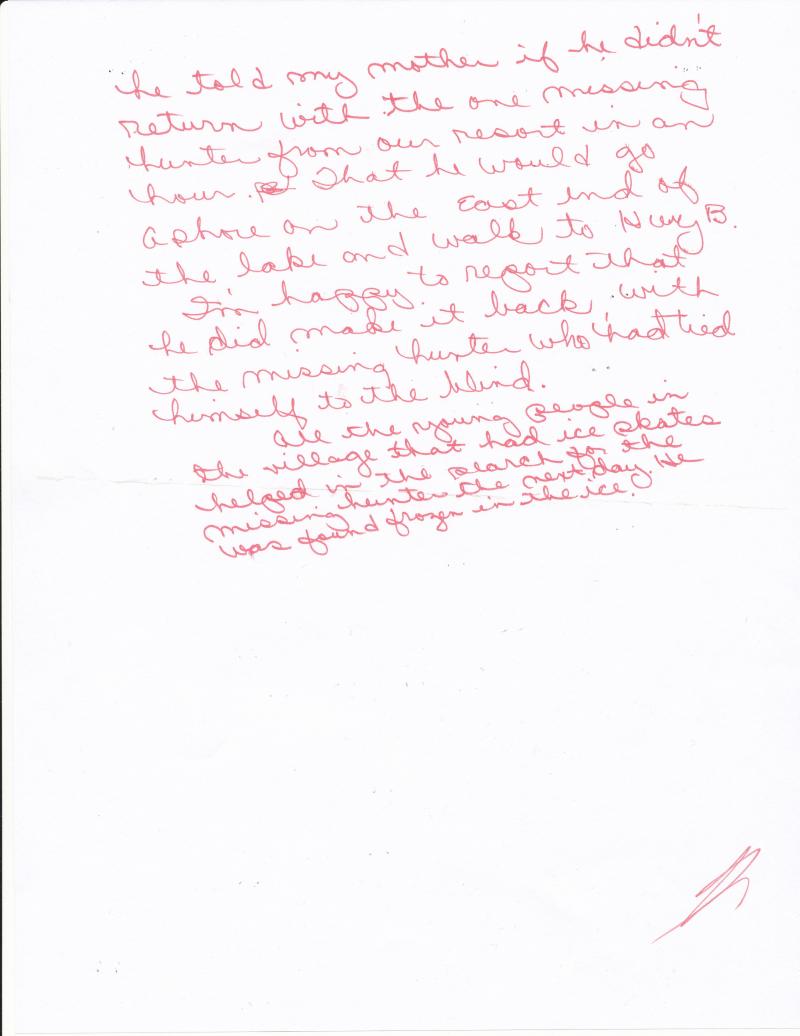 he told my mother if he didn't
return with the one missing
hunter from our resort in an
hour. That he would go
ashore on the East end of
the lake and walk to Hwy B.
I'm happy to report that
he did make it back with
the missing hunter who had tied
himself to the blind.
All the young people in
the village that had ice skates
helped in the search for the
missing hunter the next day. He
was found frozen in the ice.